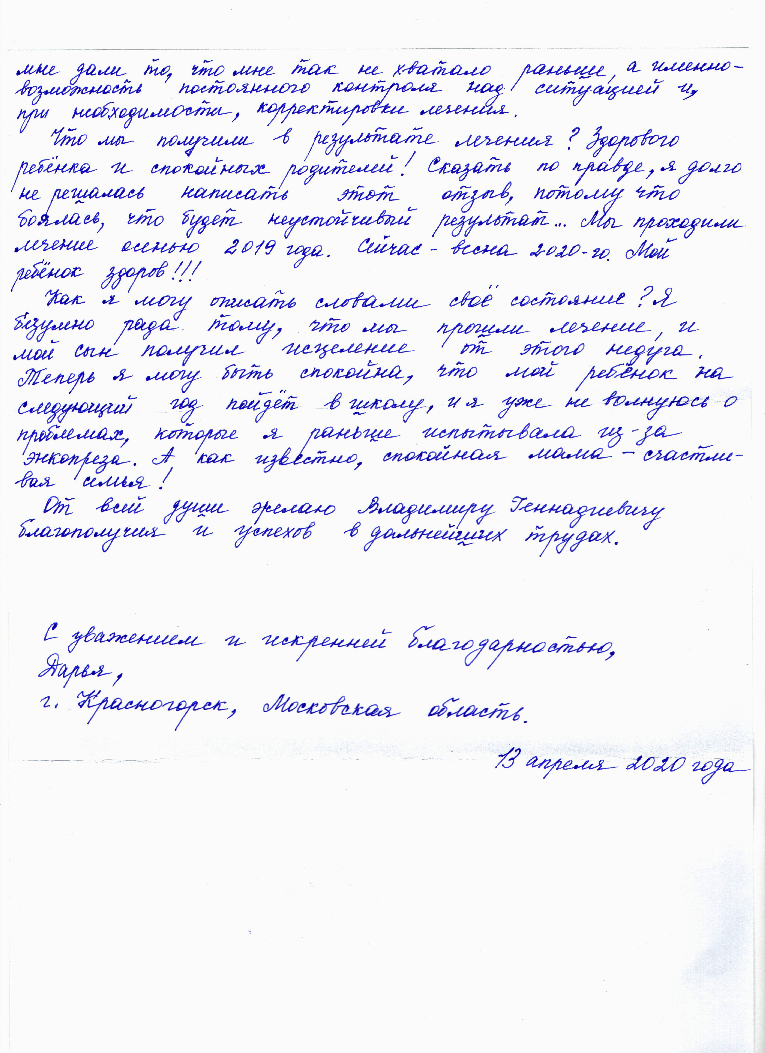 мне дали то, что мне так не хватало раньше, а именно-
возможность постоянного контроля над ситуацией и,
при необходимости, корректировки лечения.
Что мы получили в результате лечения? Здорового
ребёнка и спокойных родителей! Сказать по правде, я долго
не решалась написать этот отзыв, потому что
боялась, что будет неустойчивый результат... Мы проходили
лечение осенью 2019 года. Сейчас - весна 2020-го. Мой
ребёнок здоров!!!
Как я могу описать словами своё состояние? Я
безумно рада тому, что мы прошли лечение, и
мой сын получил исцеление от этого недуга.
Теперь я могу быть спокойна, что мой ребёнок на
следующий год пойдёт в школу, и я уже не волнуюсь о
проблемах, которые я раньше испытывала из-за
энкопреза. А как известно, спокойная мама - счастли-
вая семья!
От всей души желаю Владимиру Геннадиевичу
благополучия и успехов в дальнейших трудах.
С уважением и искренней благодарностью,
Дарья,
г. Красногорск, Московская область.
13 апреля 2020 года